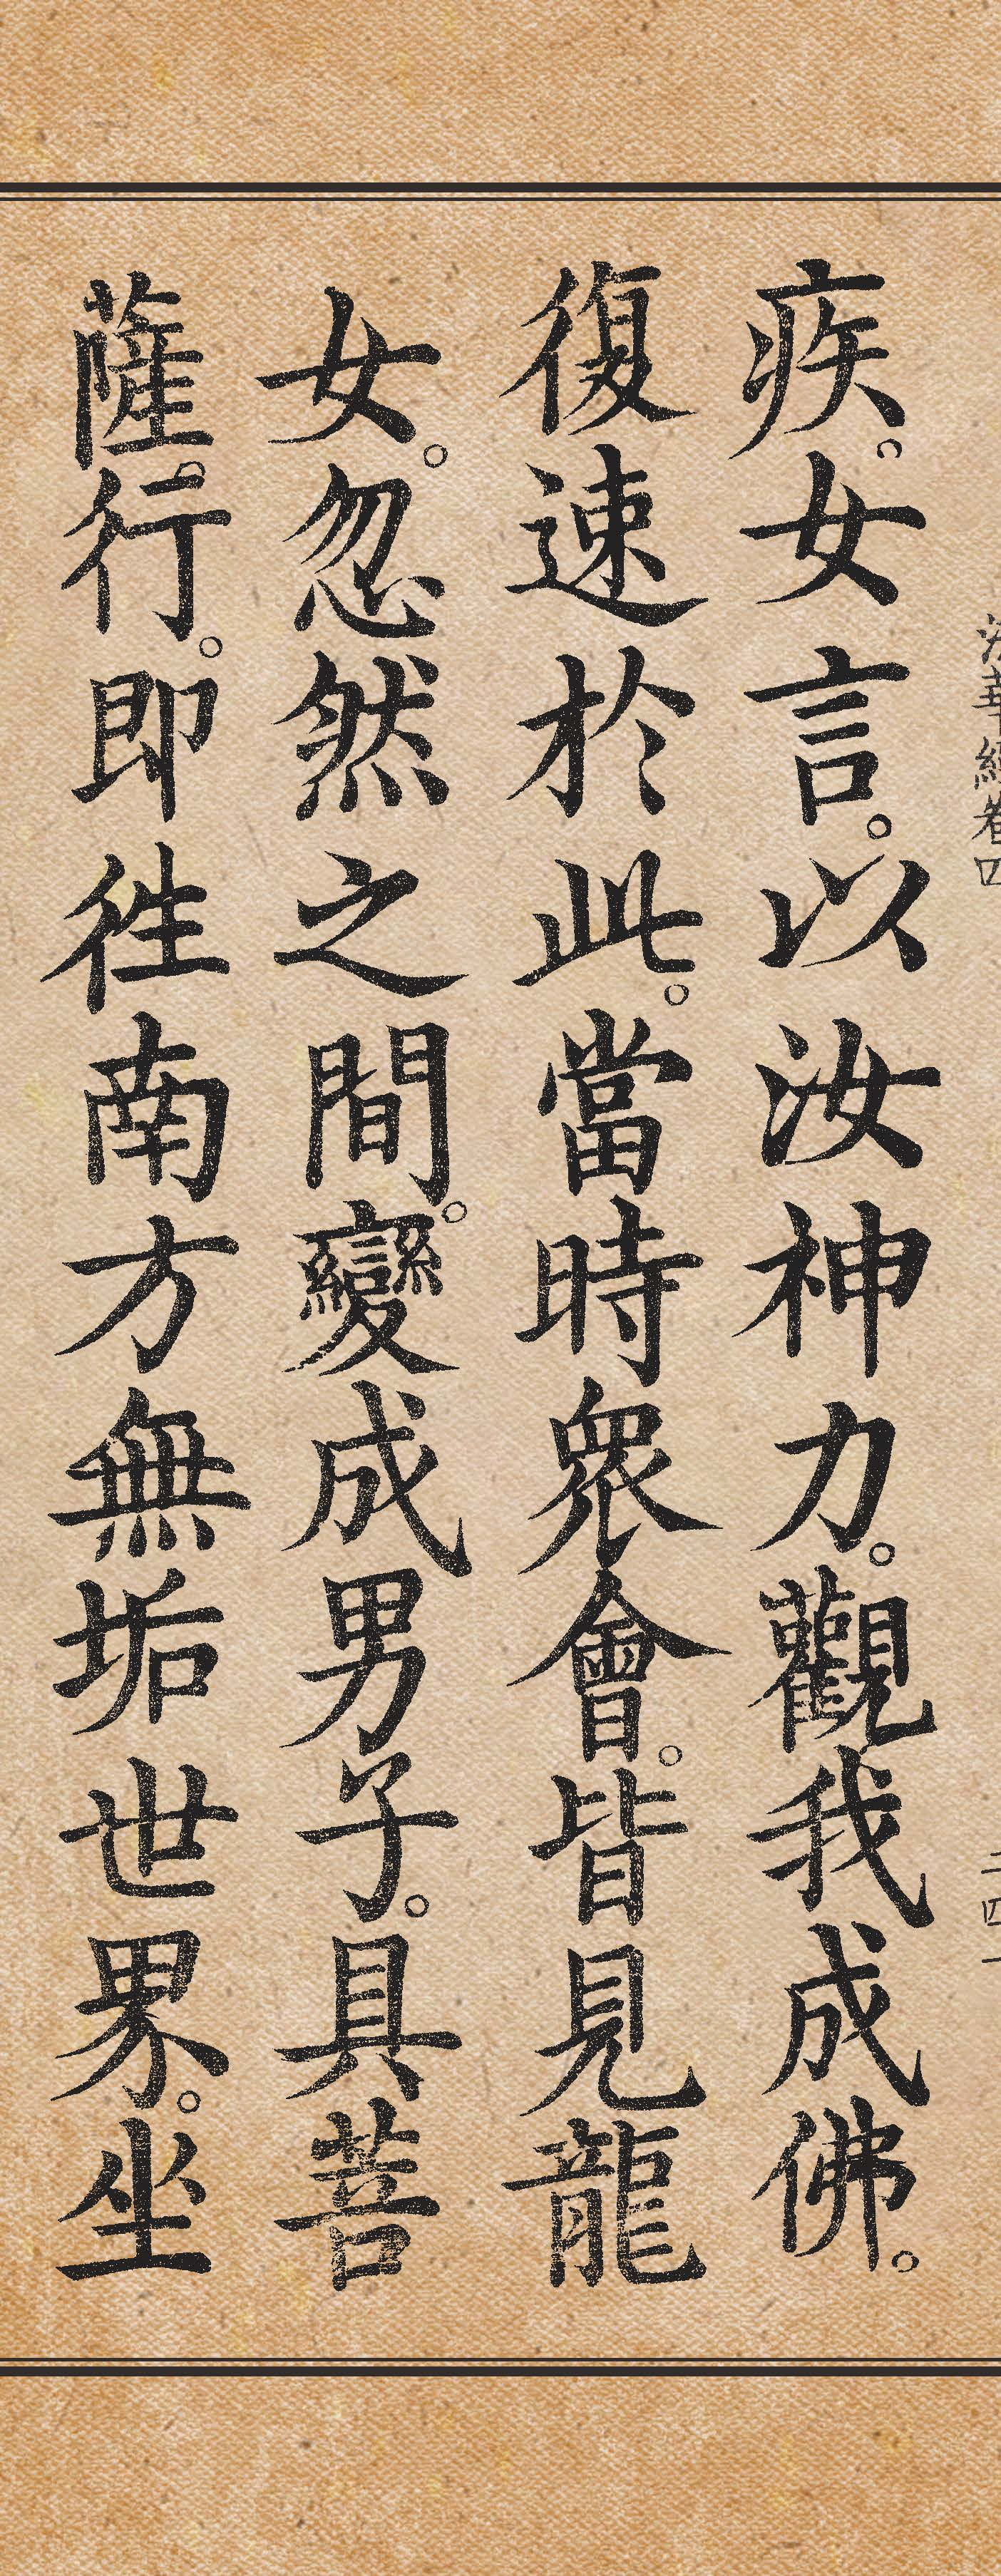 法華經卷四
二四一
疾。女言。以汝神力。觀我成佛。
復速於此。當時眾會。皆見龍
女。忽然之間。變成男子。具菩
薩。行。即往南方無垢世界。坐